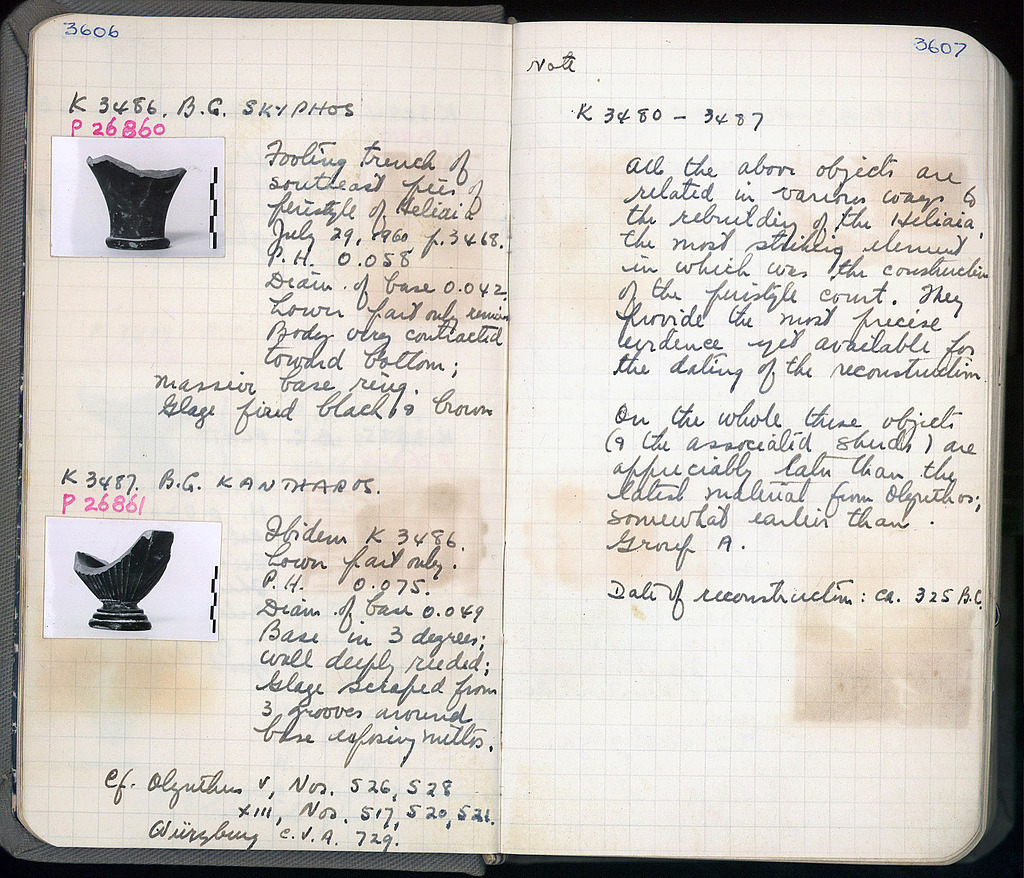 3606
K 3486. B.G. SKYPHOS
P 26860
Footing trench of
southeast pier of
peristyle of Heliaia
July 29, 1960 p. 3468.
P.H. 0.058
Diam. of base 0.042.
Lower part only remains
Body very contracted
toward bottom;
massive base ring.
Glaze fired black & brown
K 3487. B.G. KANTHAROS.
P 26861
Ibidem K 3486.
Lower part only.
P.H. 0.075.
Diam. of base 0.049
Base in 3 degrees;
wall deeply reeded;
Glaze scraped from
3 grooves around
base exposing miltos.
Cf. Olynthus V, Nos. 526, 528
XIII, Nos. 517, 520, 521.
Würzburg C.V.A. 729.
3607
Note
K 3480 - 3487
All the above objects are
related in various ways to
the rebuilding of the Heliaia,
the most striking element
in which was the construction
of the peristyle court. They
provide the most precise
evidence yet available for
the dating of the reconstruction.
On the whole these objects
(& the associated sherds) are
appreciably later than the
latest material from Olynthos;
somewhat earlier than
Group A.
Date of reconstruction: ca. 325 B.C.